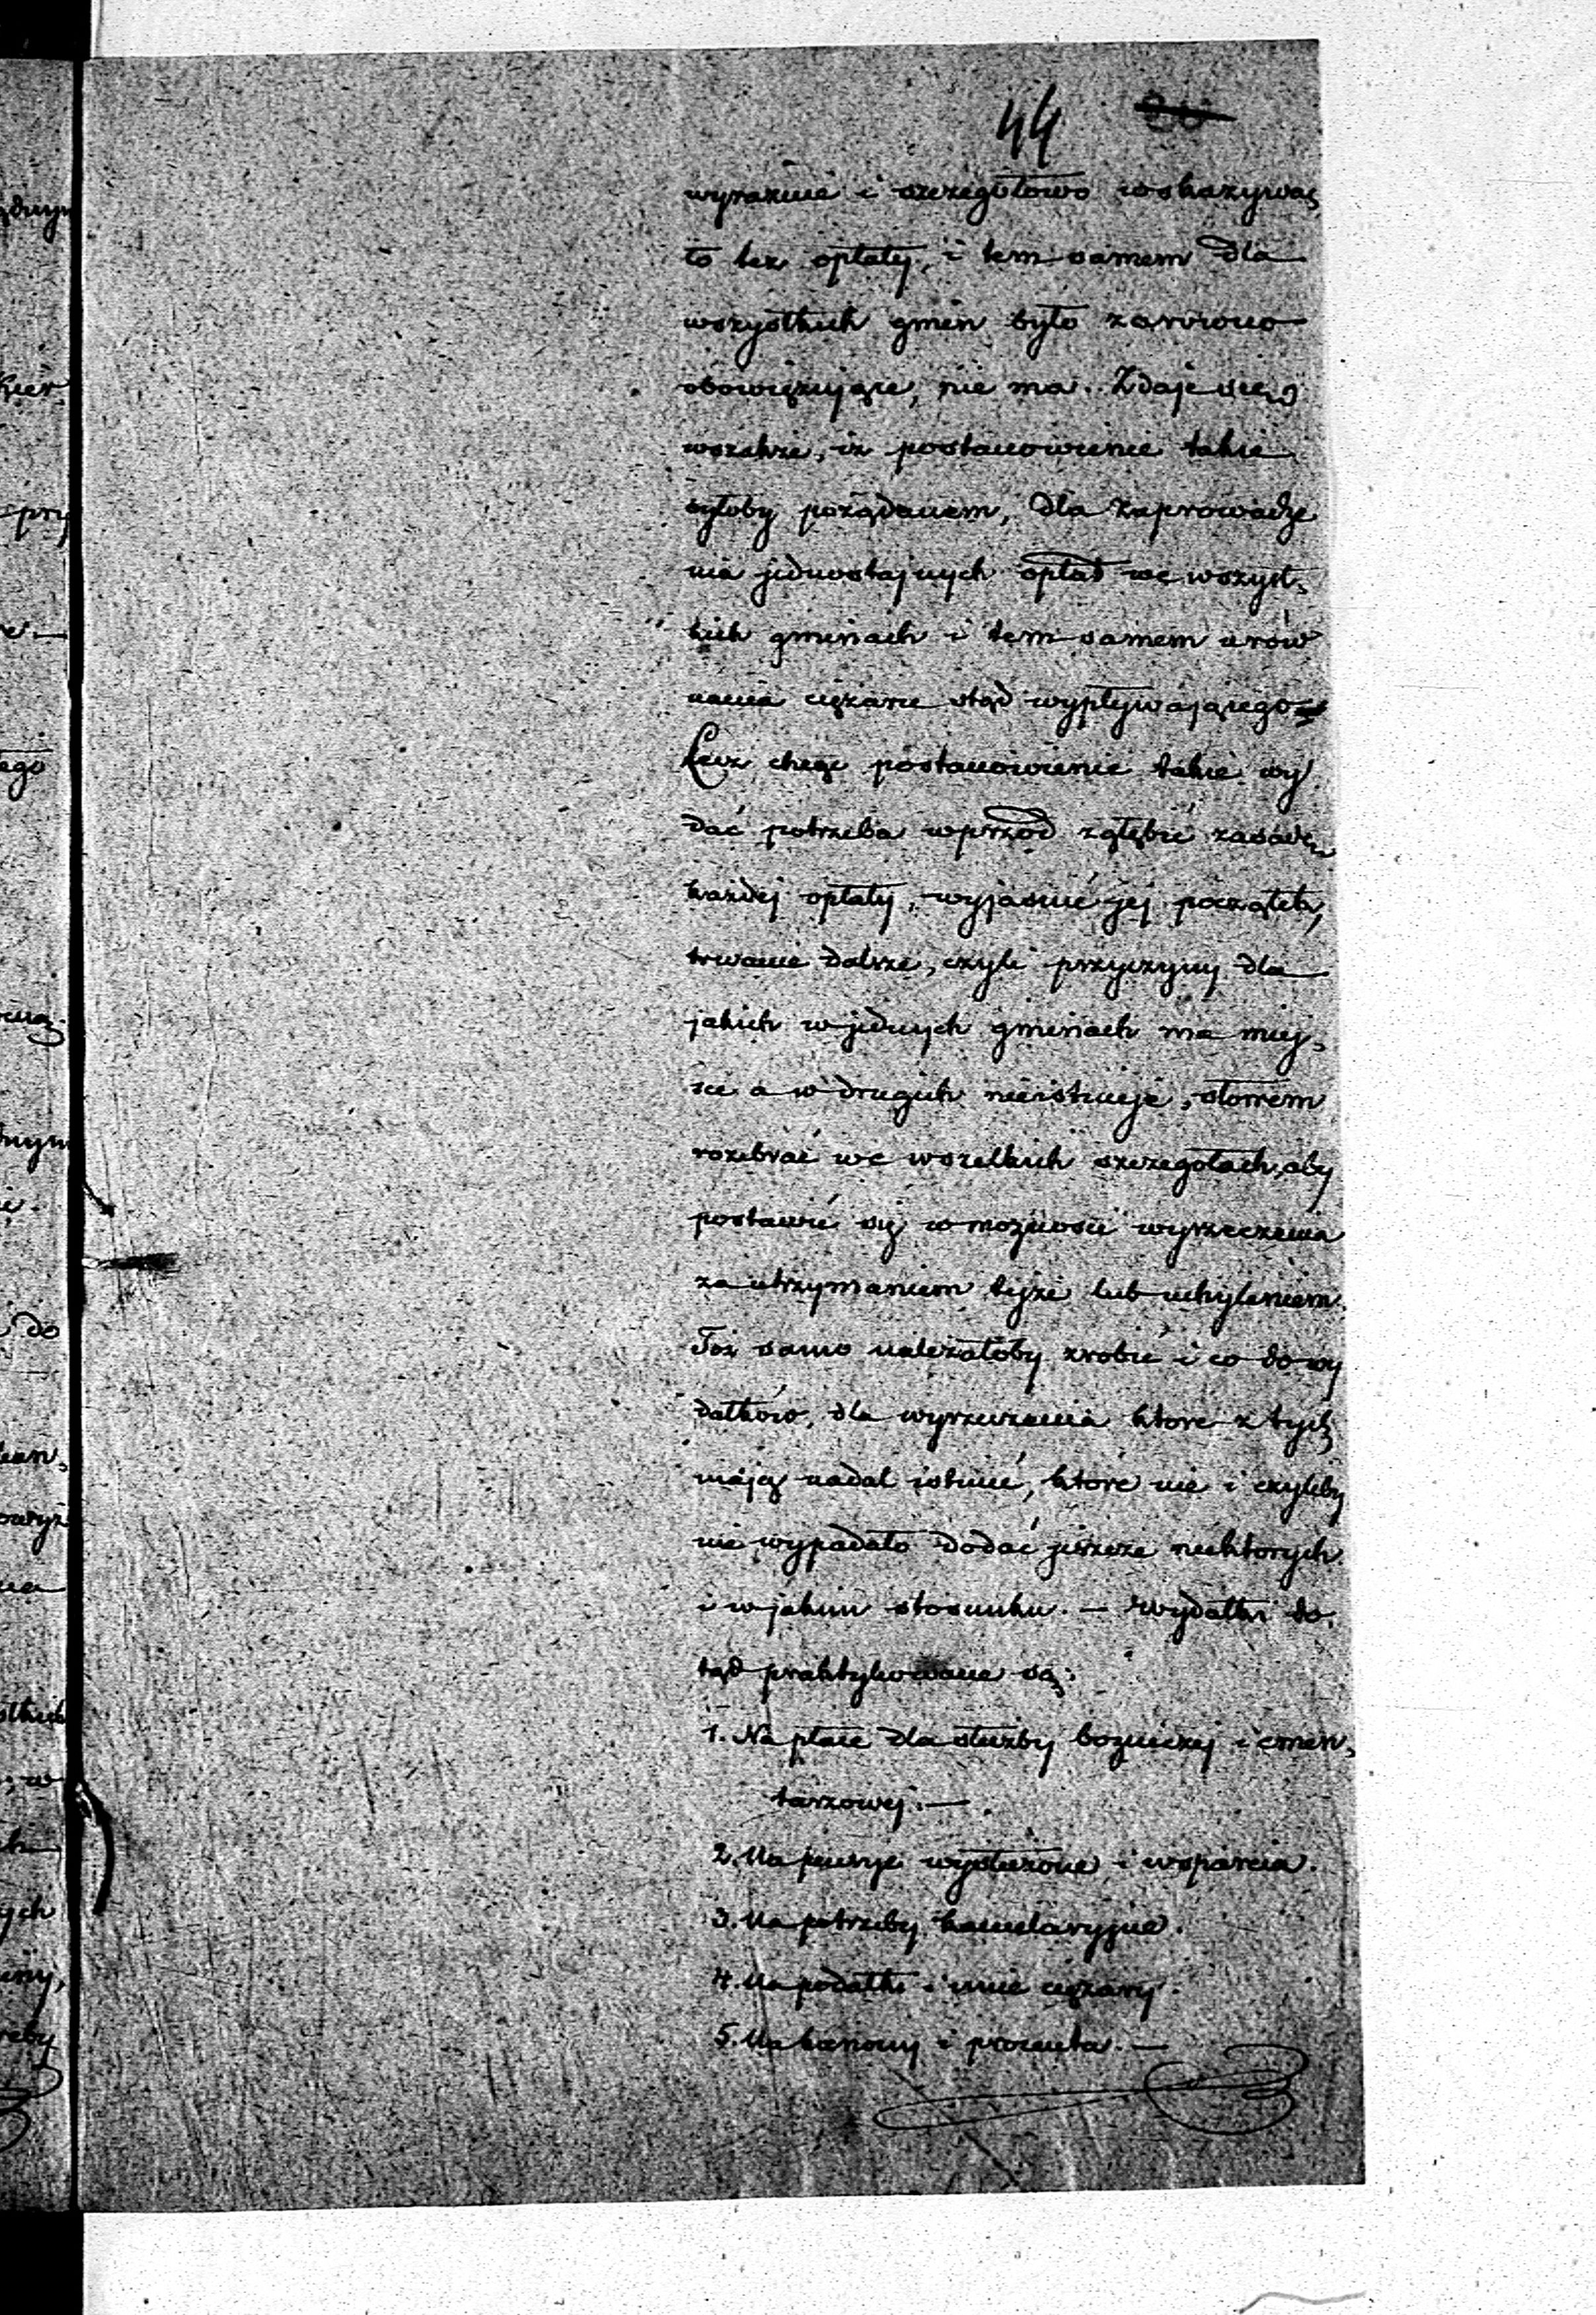 44 30
wyraźnie i szczegółowo wskazywać
to tez opłaty, i tem samem dla
wszystkich gmin było zarówno
obowięzujące, nie ma. Zdaje się
wszakże, iż postanowienie takie
byłoby pożądanem, dla zaprowadze
nia jednostajnych opłat we wszyst,
kich gminach i tem samem urów
nania ciężaru stąd wypływającego
Lecz chcąc postanowienie takie wy
dać potrzeba wprzód zgłębić zasadę
każdej opłaty, wyjaśnić jej początek,
trwanie dalsze, czyli przyczyny dla
jakich w jednych gminach ma miej,
sce a w drugich nieistnieje, słowem
rozebrać we wszelkich szczegołach, aby
postawić się w możności wyrzeczenia
za utrzymaniem tejże lub uchyleniem.
Toż samo należałoby zrobić i co do wy
datków, dla wyrzeczenia które z tych
mają nadal istnieć, które nie i czyliby
nie wypadało dodać jeszcze niektórych
i w jakim stosunku. — Wydatki do
tąd praktykowane są:
1. Na płace dla służby bożniczej i cmen,
tarzowej. —
2. Na pensye wysłużone i wsparcia.
3. Na potrzeby kancelaryjne.
4. Na podatki i inne ciężary.
5. Na kanony i procenta. —